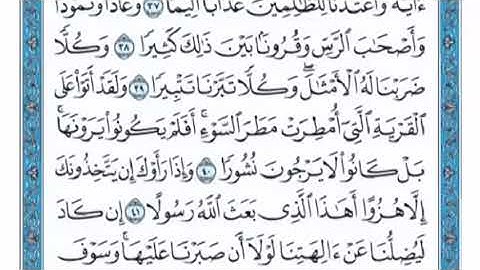 ءَايَةً وَأَعْتَدْنَا لِلظَّٰلِمِينَ عَذَابًا أَلِيمًا ٣٧ وَعَادًا وَثَمُودَا۟
وَأَصْحَٰبَ ٱلرَّسِّ وَقُرُونًۢا بَيْنَ ذَٰلِكَ كَثِيرًا ٣٨ وَكُلًّا
ضَرَبْنَا لَهُ ٱلْأَمْثَٰلَۖ وَكُلًّا تَبَّرْنَا تَتْبِيرًا ٣٩ وَلَقَدْ أَتَوْا۟ عَلَى
ٱلْقَرْيَةِ ٱلَّتِىٓ أُمْطِرَتْ مَطَرَ ٱلسَّوْءِۚ أَفَلَمْ يَكُونُوا۟ يَرَوْنَهَاۚ
بَلْ كَانُوا۟ لَا يَرْجُونَ نُشُورًا ٤٠ وَإِذَا رَأَوْكَ إِن يَتَّخِذُونَكَ
إِلَّا هُزُوًا أَهَٰذَا ٱلَّذِى بَعَثَ ٱللَّهُ رَسُولًا ٤١ إِن كَادَ
لَيُضِلُّنَا عَنْ ءَالِهَتِنَا لَوْلَآ أَن صَبَرْنَا عَلَيْهَاۚ وَسَوْفَ